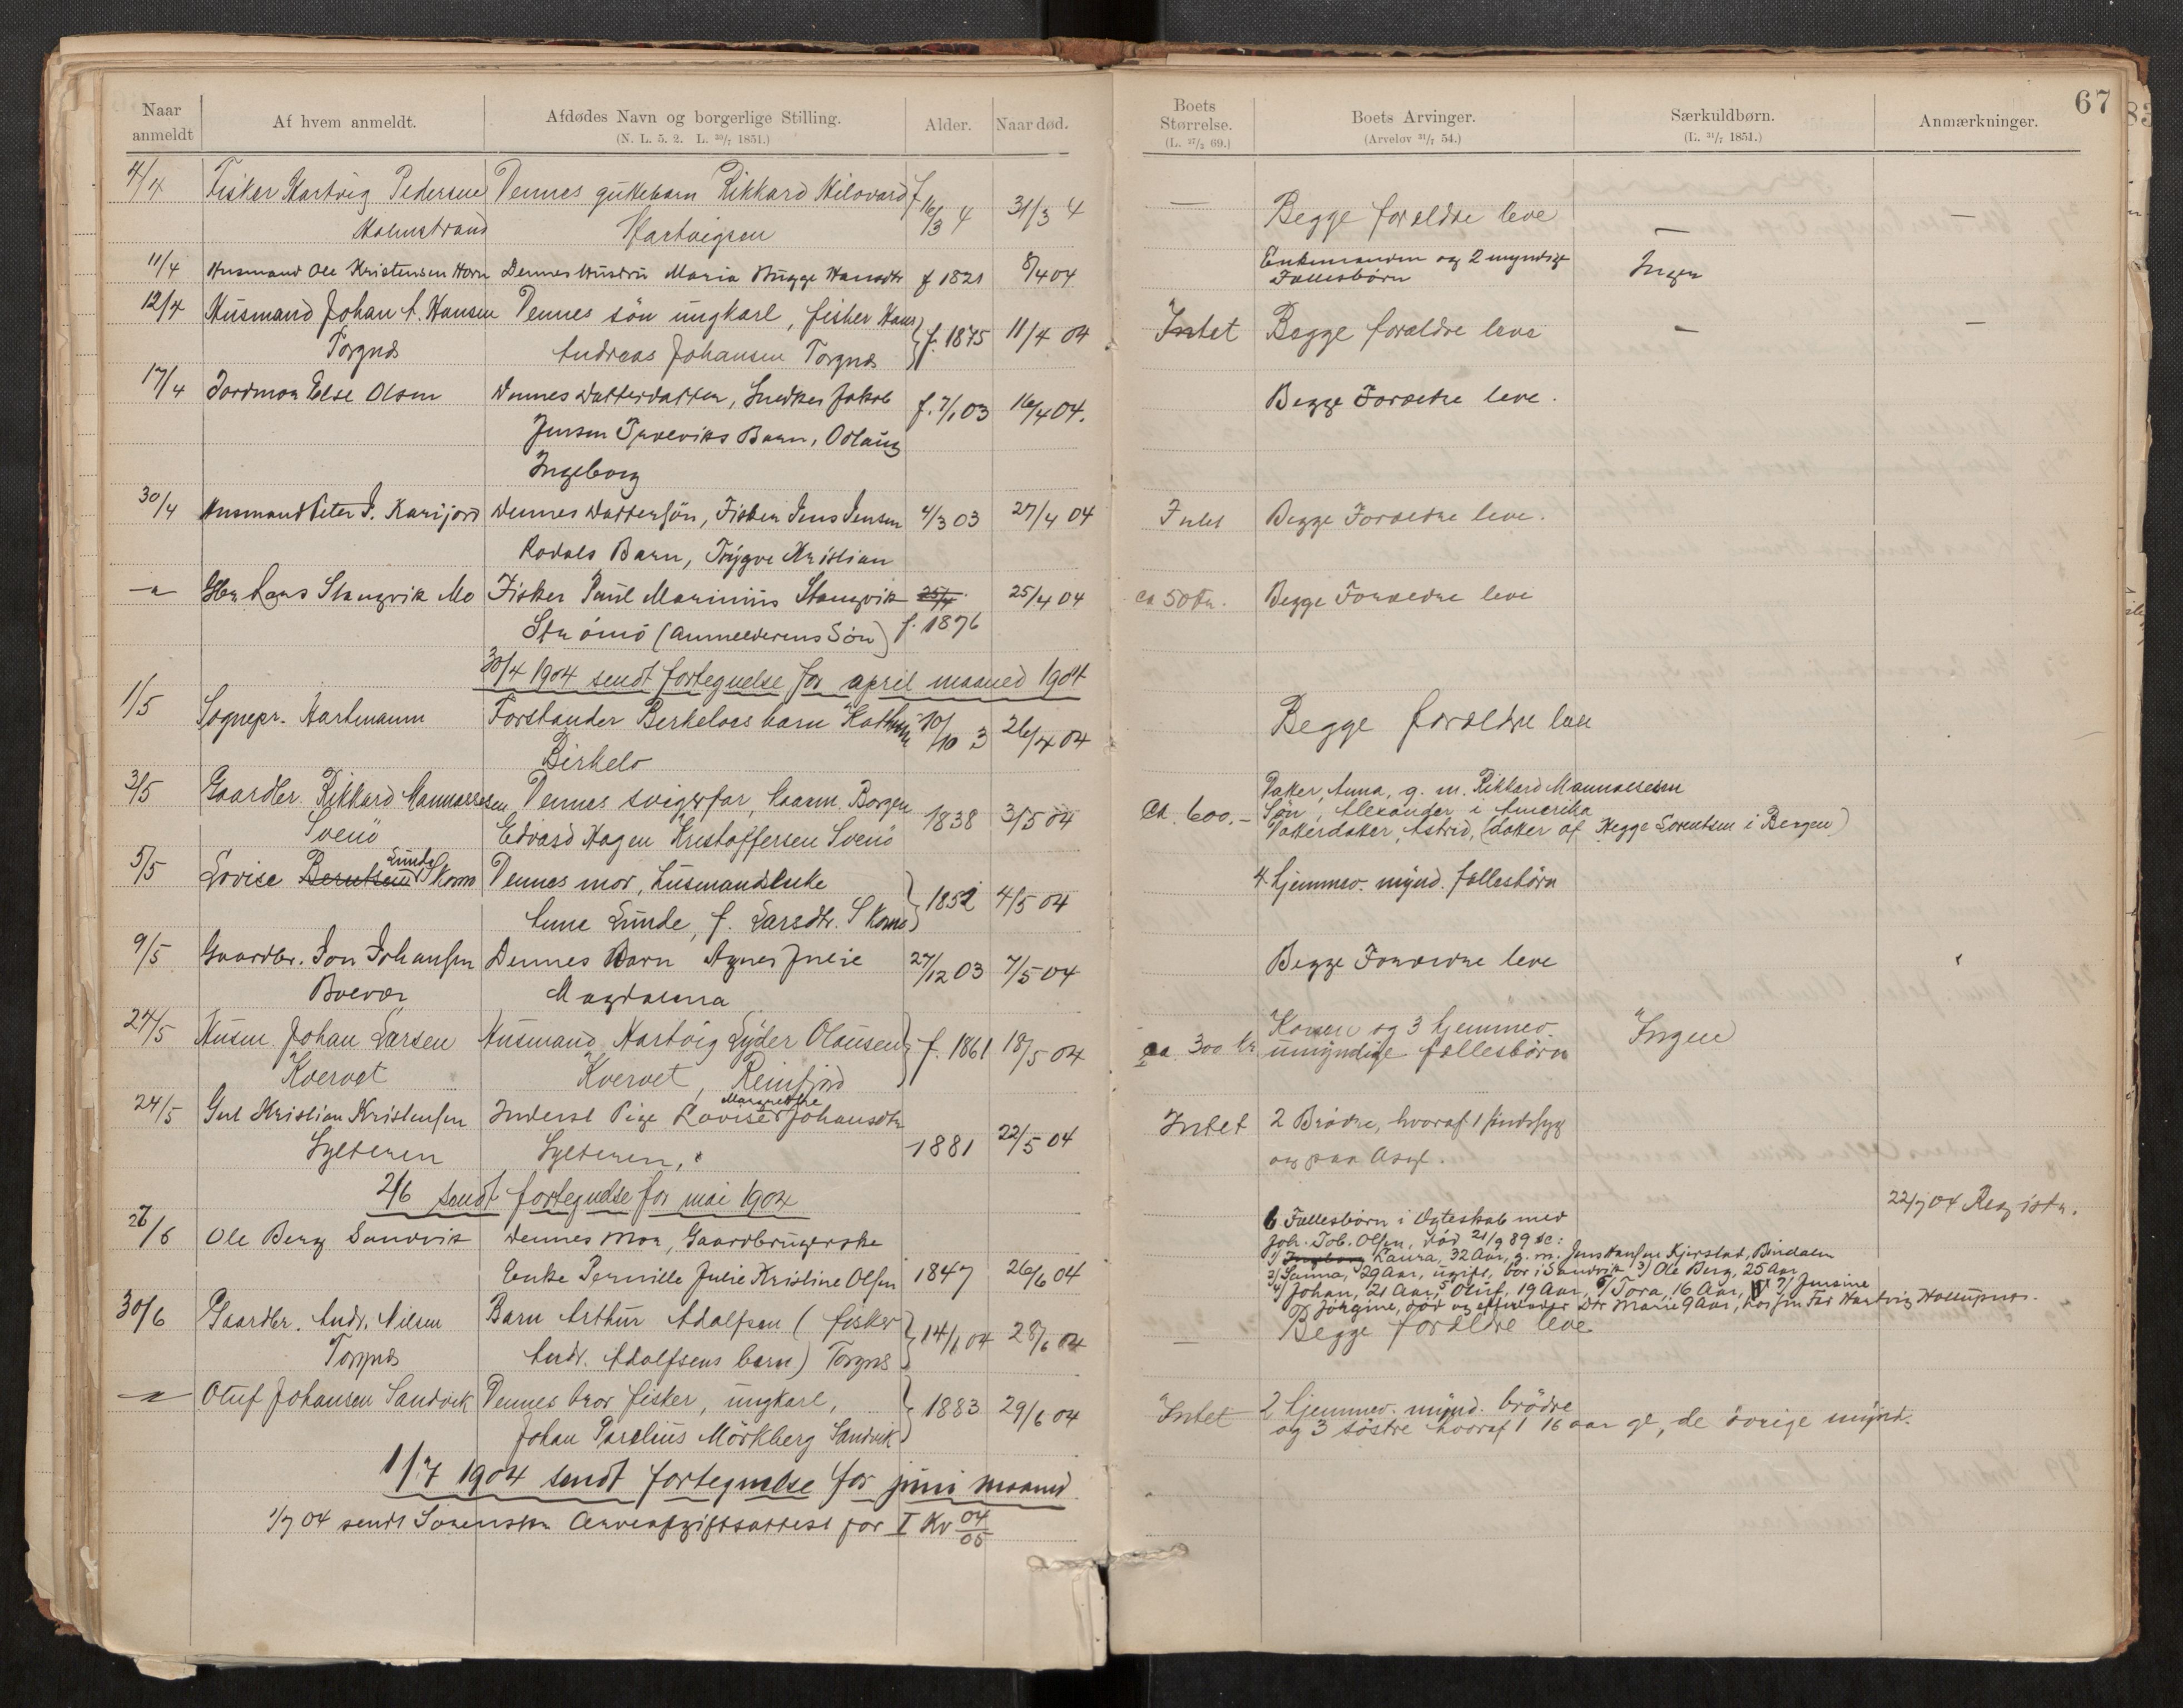 67
Naar anmeldt
Af hvem anmeldt.
Afdødes Navn og borgerlige Stilling.
(N. L. 5. 2. L. 30/7 1851.)
Alder.
Naar død.
Boets Størrelse.
(L. 27/2 69.)
Boets Arvinger.
(Arvelov 31/7 54.)
Særkuldbørn.
(L. 31/7 1851.)
Anmærkninger.
4/4 Fisker Hartvig Pedersen Dennes guttebarn Rikkard Hilovard f 16/3 4 31/3 4 — Begge forældre leve — —
Holmstrand Hartvigsen
11/4 Husmand Ole Kristensen Horn Dennes Hustru Maria Bugge Hansdtr f 1821 8/4 04 Enkemanden og 2 myndige Ingen
Fællesbörn
12/4 Husmand Johan A. Hansen Dennes sön ungkarl, fisker Hans f. 1875 11/4 04 Intet Begge forældre leve — —
Torgnes Andreas Johansen Torgnes
17/4 Jordmor Else Olsen Dennes Datterdatter, Snedker Jakob f. 7/1 03 16/4 04. Begge Forældre leve.
Jensen Barn, Odlaug
Ingeborg
30/4 Husmand Peter J. Karijord Dennes Dattersön, Fisker Jens Jensen 4/3 03 27/4 04 Intet Begge Forældre leve.
Rodals Barn, Trygve Kristian
—"— Gbr Lars Stangvik Mo Fisker Paul Marinius Stangvik 25/4 25/4 04 ca 50 kr. Begge Forældre leve
Strömö (Anmelderens Sön) f. 1876
30/4 1904 sendt fortegnelse for april maaned 1904
1/5 Sognepr. Hartmann Forstander Berkeloes barn Kathrine 10/10 3 26/4 04 Begge forældre leve
Birkelo
3/5 Gaardbr. Rikkard Mannassesen Dennes svigerfar, kaarm. Borgen 1838 3/5 04 ca. 600.-
Svenö Edvard Hagen Kristoffersen Svenö
Datter, Anna, g. m. Rikkard Mannassesen
Sön, Alexander i Amerika
Datterdatter, Astrid, (datter af Hegge Lorentsen i Bergen)
5/5 Lovise Berntsen Lunde Skomo Dennes mor, husmandsenke 1852 4/5 04 4 hjemmev. mynd. fællesbörn
Anne Lunde, f. Larsdtr. Skomo
9/5 Gaardbr. Jon Johansen Dennes Barn Agnes Julie 27/12 03 7/5 04 Begge Forældre leve
Bolvær Magdalena
24/5 Husm. Johan Larsen Husmand Hartvig Lyder Olausen f. 1861 18/5 04 ca. 300 kr Konen og 3 hjemmev. Ingen
Kvervet Kvervet, Reinfjord umyndige fællesbörn
24/5 Gbr Kristian Kristensen Inderst Pige Lovise Margrethe Johansdtr 1881 22/5 04 Intet 2 Brödre, hvoraf 1 sindssyg
Sylteren Sylteren, og paa Asyl.
2/6 sendt fortegnelse for mai 1904
27/6 Ole Berg Sandvik Dennes Mor, Gaardbrugerske 22/7 04 Registr.
Enke Pernille Julie Kristine Olsen 1847 26/6 04
6 Fællesbörn i Ægteskab med
Joh. Tob. Olsen, död 21/9 89 sc:
1) Laura, 32 Aar, g. m. Jens Hansen Kjerstad, Bindalen
2) Sanna, 29 Aar, ugift, bor i Sandvik 3) Ole Berg, 25 Aar
4) Johan, 21 Aar, 5) Oluf, 19 Aar, 6) Tora, 16 Aar, 7) Jensine
Jörgine, död og efterlader Dtr Marie 9 Aar, hos sin Far Hartvig
30/6 Gaardbr. Andr. Nilsen Barn Arthur Adolfsen (fisker 14/1 04 28/6 04 — Begge forældre leve
Torgnes Andr. Adolfsens barn) Torgnes
—"— Oluf Johansen Sandvik Dennes bror fisker, ungkarl, 1883 29/6 04 Intet 2 hjemmev. mynd. brödre
Johan Parelius Mörkberg Sandvik og 3 söstre hvoraf 1 16 aar gl, de övrige mynd.
1/7 1904 sendt fortegnelse for juni maaned
1/7 04 sendt Sorenskr. Arveafgiftsattest for I Kv 04/05